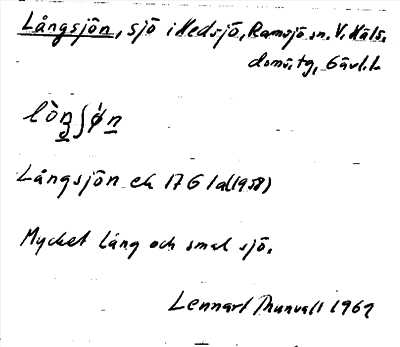 Långsjön, sjö i Hedsjö, Ramsjö sn. V. Häls.
doms. tg, Gävl. l.
Långsjön ek 17 G 1 d (1958)
Mycket lång och smal sjö.
Lennart Thunvall 1967